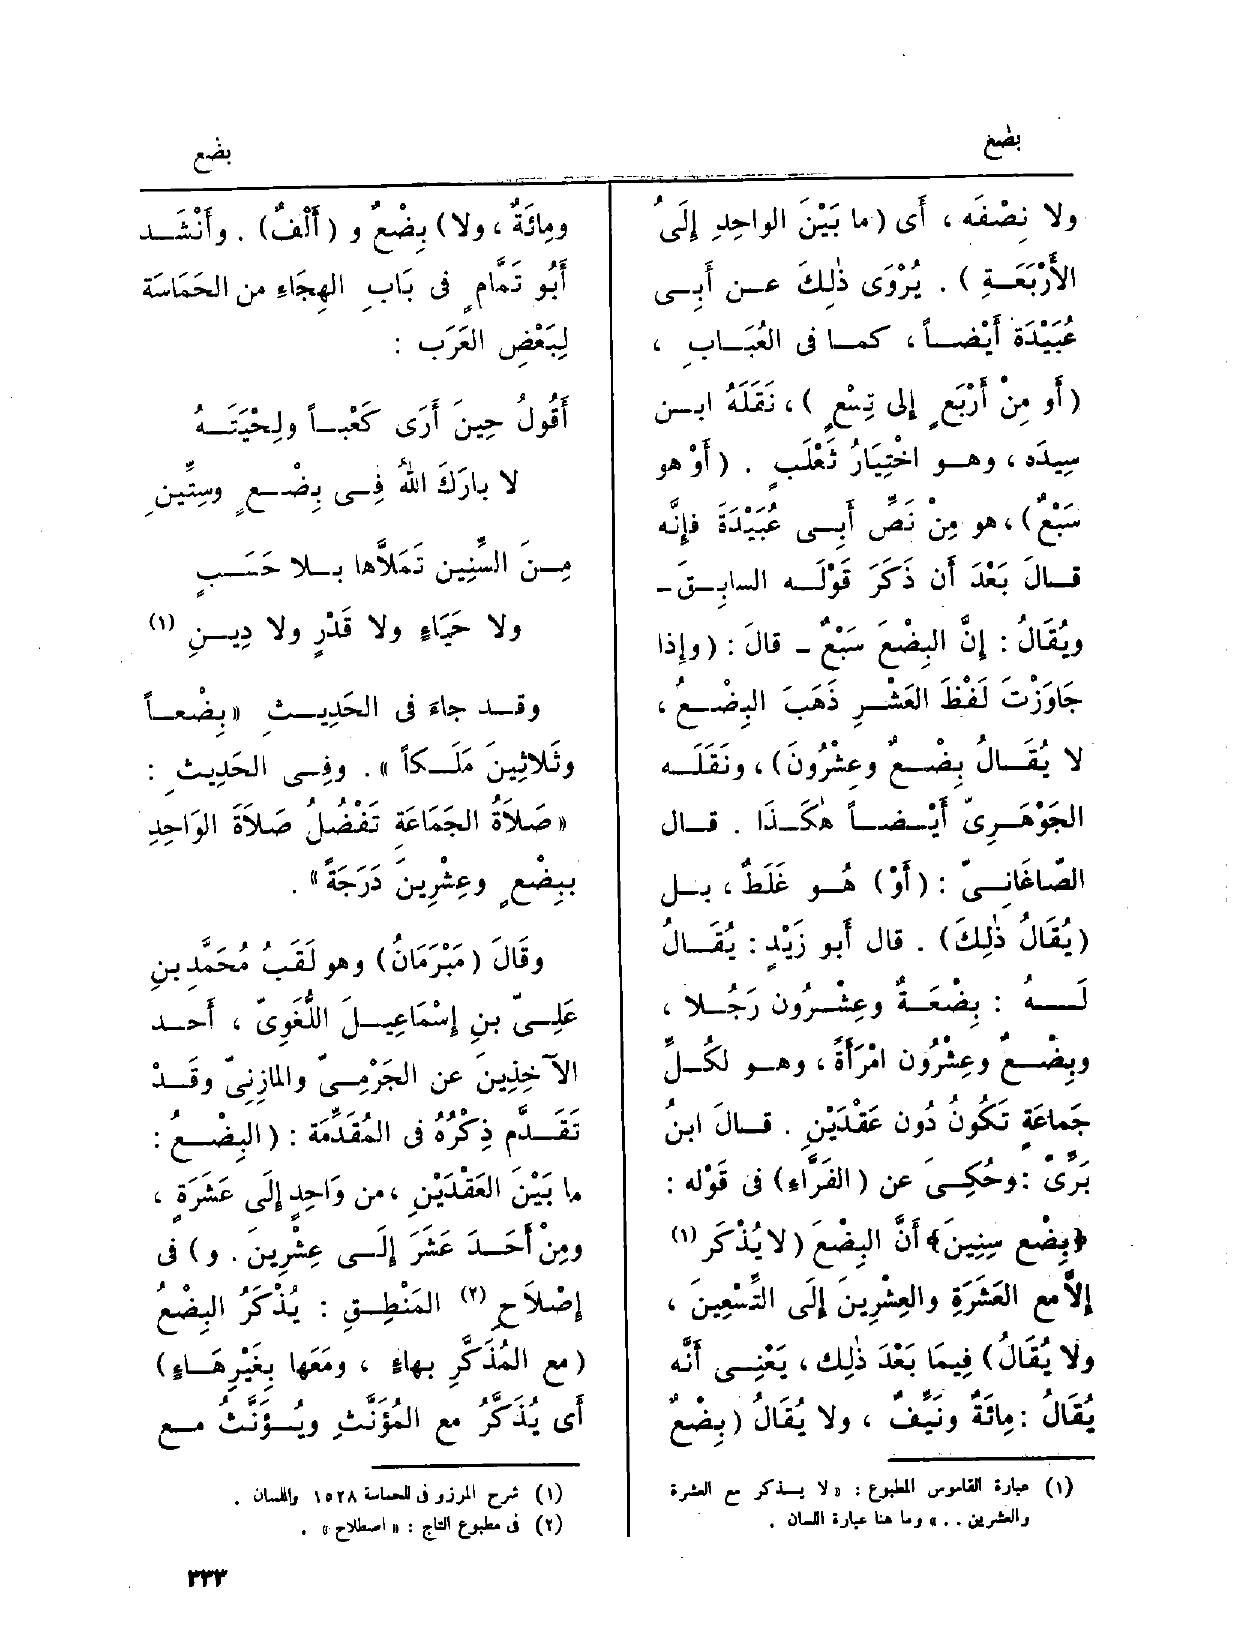 بضع
بضع
ولا نِصْفَه ، أَى (ما بَيْنَ الواحِدِ إِلَىُ
الأَرْبَعَـةِ ) . يُرْوَى ذٰلِكَ عـن أَبـى
عُبَيْدَةَ أَيْضـاً ، كمـا فى العُبَـابِ ،
(أَو مِنْ أَرْبَعٍ إِلى تِسْعٍ ) ، نَقَلَهُ ابـن
سِيدَه ، وهـو اخْتِيَارُ ثَعْلَبٍ . (أَوْ هو
سَبْعٌ) ، هو مِنْ نَصِّ أَبـى عُبَيْدَةَ فإِنَّه
قـالَ بَعْدَ أَن ذَكَرَ قَوْلَـه السابِـقَ ـ
ويُقَالُ : إِنَّ البِضْعَ سَبْعٌ ـ قالَ : (وإِذا
جَاوَزْتَ لَفْظَ العَشْـرِ ذَهَبَ البِضْـعُ ،
لا يُقَـالُ بِضْـعٌ وعِشْرُونَ) ، ونَقَلَـه
الجَوْهَـرِىّ أَيْـضـاً هٰكَـذَا . قـال
الصّاغَانِـىّ : (أَوْ) هُـو غَلَطٌ ، بـل
(يُقَالُ ذٰلِكَ) . قال أَبو زَيْدٍ : يُقَـالُ
لَـهُ : بِضْعَـةٌ وعِشْـرُون رَجُـلا ،
وبِضْـعٌ وعِشْرُون امْرَأَةً ، وهـو لكُـلِّ
جَماعَةٍ تَكُونُ دُون عَقْدَيْنِ . قـالَ ابنُ
بَرِّىّ :وحُكِـىَ عن (الفَرَّاءِ) فى قَوْله :
﴿بِضْعِ سِنِينَ﴾ أَنَّ البِضْعَ (لا يُذْكَر (١)
إِلاَّ مع العَشَرَةِ والعِشْرِينَ إِلَى التِّسْعِينَ ،
ولا يُقَالُ) فِيمَا بَعْدَ ذٰلِك ، يَعْنِـى أَنَّه
يُقَالُ : مِائَةٌ ونَيِّفٌ ، ولا يُقَالُ (بِضْعٌ
(١) عبارة القاموس المطبوع : «لا يـذكر مع العشرة
والعشرين . . » وما هنا عبارة اللسان .
ومِائَةٌ ، ولا) بِضْعٌ و (أَلْفٌ) . وأَنْشَـد
أَبُو تَمَّامٍ فى بَابِ الهِجَاءِ من الحَمَاسَة
لِبَعْضِ العَرَب :
أَقُولُ حِينَ أَرَى كَعْبـاً ولِحْيَتَـهُ
لا بارَكَ اللهُ فِـى بِضْـعٍ وسِتِّينِ
مِـنَ السِّنِين تَمَلاَّها بِـلا حَسَـبٍ
ولا حَيَاءٍ ولا قَدْرٍ ولا دِيـنِ (١)
وقـد جاءَ فى الحَدِيـثِ «بِضْعـاً
وثَلاثِينَ مَلَـكاً » . وفِـى الحَدِيثِ :
«صَلاَةُ الجَمَاعَةِ تَفْضُلُ صَلاَةَ الوَاحِدِ
بِبِضْعٍ وعِشْرِينَ دَرَجَةً» .
وقَالَ (مَبْرَمَانُ) وهو لَقَبُ مُحَمَّدِ بنِ
عَلِـىّ بنِ إِسْمَاعِيـلَ اللُّغَوِىّ ، أَحـد
الآخِذِينَ عن الجَرْمِـىّ والمازِنِىّ وقَـدْ
تَقَـدَّم ذِكْرُهُ فى المُقَدِّمَة : (البِضْـعُ :
ما بَيْنَ العَقْدَيْنِ ،من وَاحِدٍ إِلَى عَشَرَةٍ ،
ومِنْ أَحَـدَ عَشَرَ إِلَـى عِشْرِينَ . و) فى
إِصْلاَحِ (٢) المَنْطِـقِ : يُذْكَرُ البِضْعُ
(مع المُذَكَّرِ بهاءٍ ، ومَعَها بِغَيْرِ هَـاءٍ)
أَى يُذَكَّرُ مع المُؤَنَّثِ ويُـؤَنَّثُ مـع
(١) شرح المرزوقى للحماسة ١٥٢٨ واللسان .
(٢) فى مطبوع التاج : «اصطلاح» .
٣٣٣